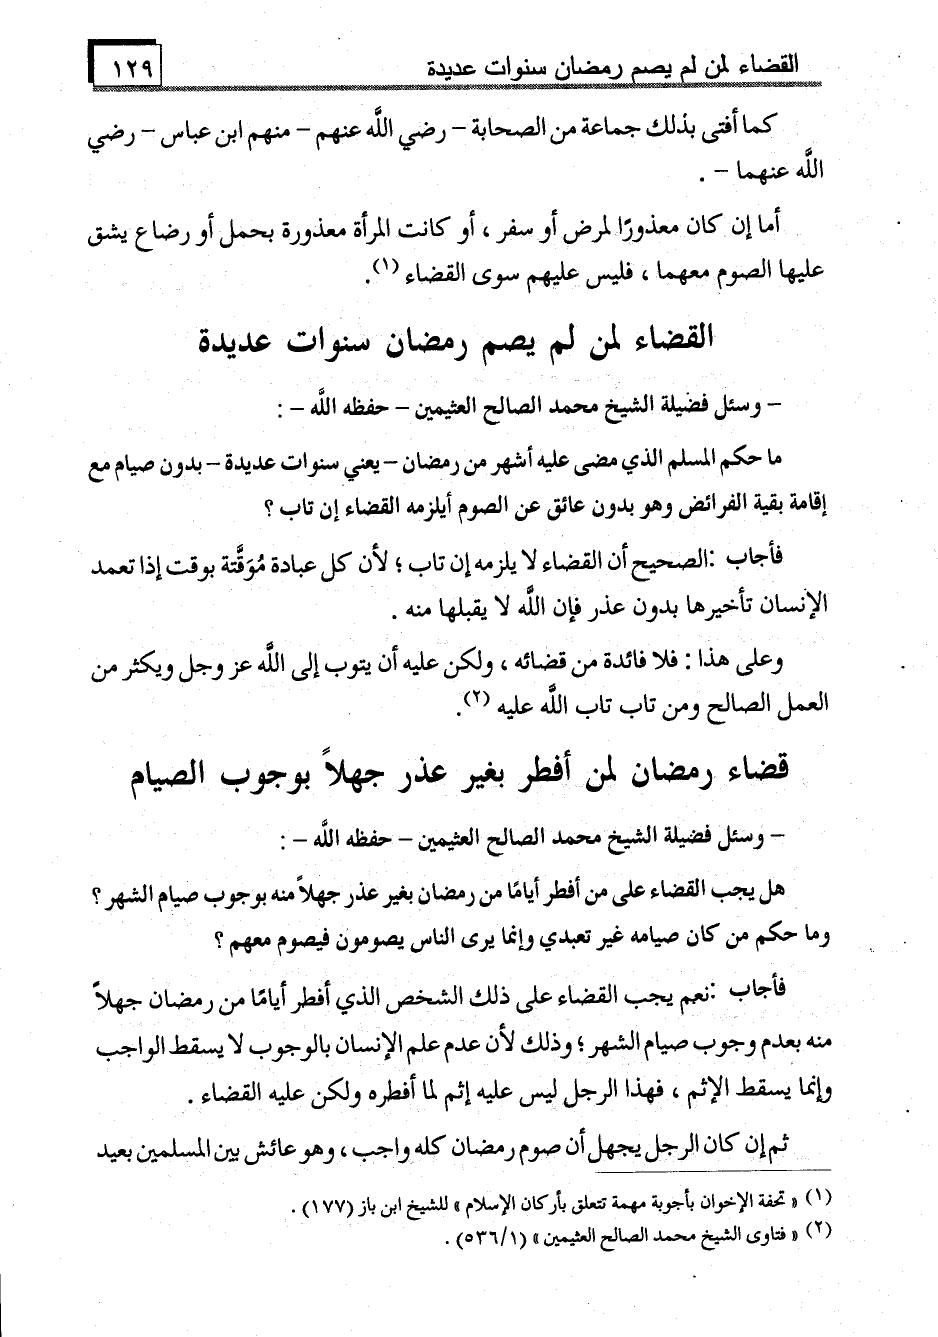 القضاء لمن لم يصم رمضان سنوات عديدة ١٢٩
كما أفتى بذلك جماعة من الصحابة – رضي اللَّه عنهم – منهم ابن عباس – رضي
اللَّه عنهما – .
أما إن كان معذورًا لمرض أو سفر ، أو كانت المرأة معذورة بحمل أو رضاع يشق
عليها الصوم معهما ، فليس عليهم سوى القضاء (١).
القضاء لمن لم يصم رمضان سنوات عديدة
– وسئل فضيلة الشيخ محمد الصالح العثيمين – حفظه اللَّه – :
ما حكم المسلم الذي مضى عليه أشهر من رمضان – يعني سنوات عديدة – بدون صيام مع
إقامة بقية الفرائض وهو بدون عائق عن الصوم أيلزمه القضاء إن تاب ؟
فأجاب :الصحيح أن القضاء لا يلزمه إن تاب ؛ لأن كل عبادة مُوَقَّتة بوقت إذا تعمد
الإنسان تأخيرها بدون عذر فإن اللَّه لا يقبلها منه .
وعلى هذا : فلا فائدة من قضائه ، ولكن عليه أن يتوب إلى اللَّه عز وجل ويكثر من
العمل الصالح ومن تاب تاب اللَّه عليه (٢).
قضاء رمضان لمن أفطر بغير عذر جهلاً بوجوب الصيام
– وسئل فضيلة الشيخ محمد الصالح العثيمين – حفظه اللَّه – :
هل يجب القضاء على من أفطر أيامًا من رمضان بغير عذر جهلاً منه بوجوب صيام الشهر ؟
وما حكم من كان صيامه غير تعبدي وإنما يرى الناس يصومون فيصوم معهم ؟
فأجاب :نعم يجب القضاء على ذلك الشخص الذي أفطر أيامًا من رمضان جهلاً
منه بعدم وجوب صيام الشهر ؛ وذلك لأن عدم علم الإنسان بالوجوب لا يسقط الواجب
وإنما يسقط الإثم ، فهذا الرجل ليس عليه إثم لما أفطره ولكن عليه القضاء .
ثم إن كان الرجل يجهل أن صوم رمضان كله واجب ، وهو عائش بين المسلمين بعيد
(١) « تحفة الإخوان بأجوبة مهمة تتعلق بأركان الإسلام » للشيخ ابن باز (١٧٧) .
(٢) « فتاوى الشيخ محمد الصالح العثيمين » (٥٣٦/١) .